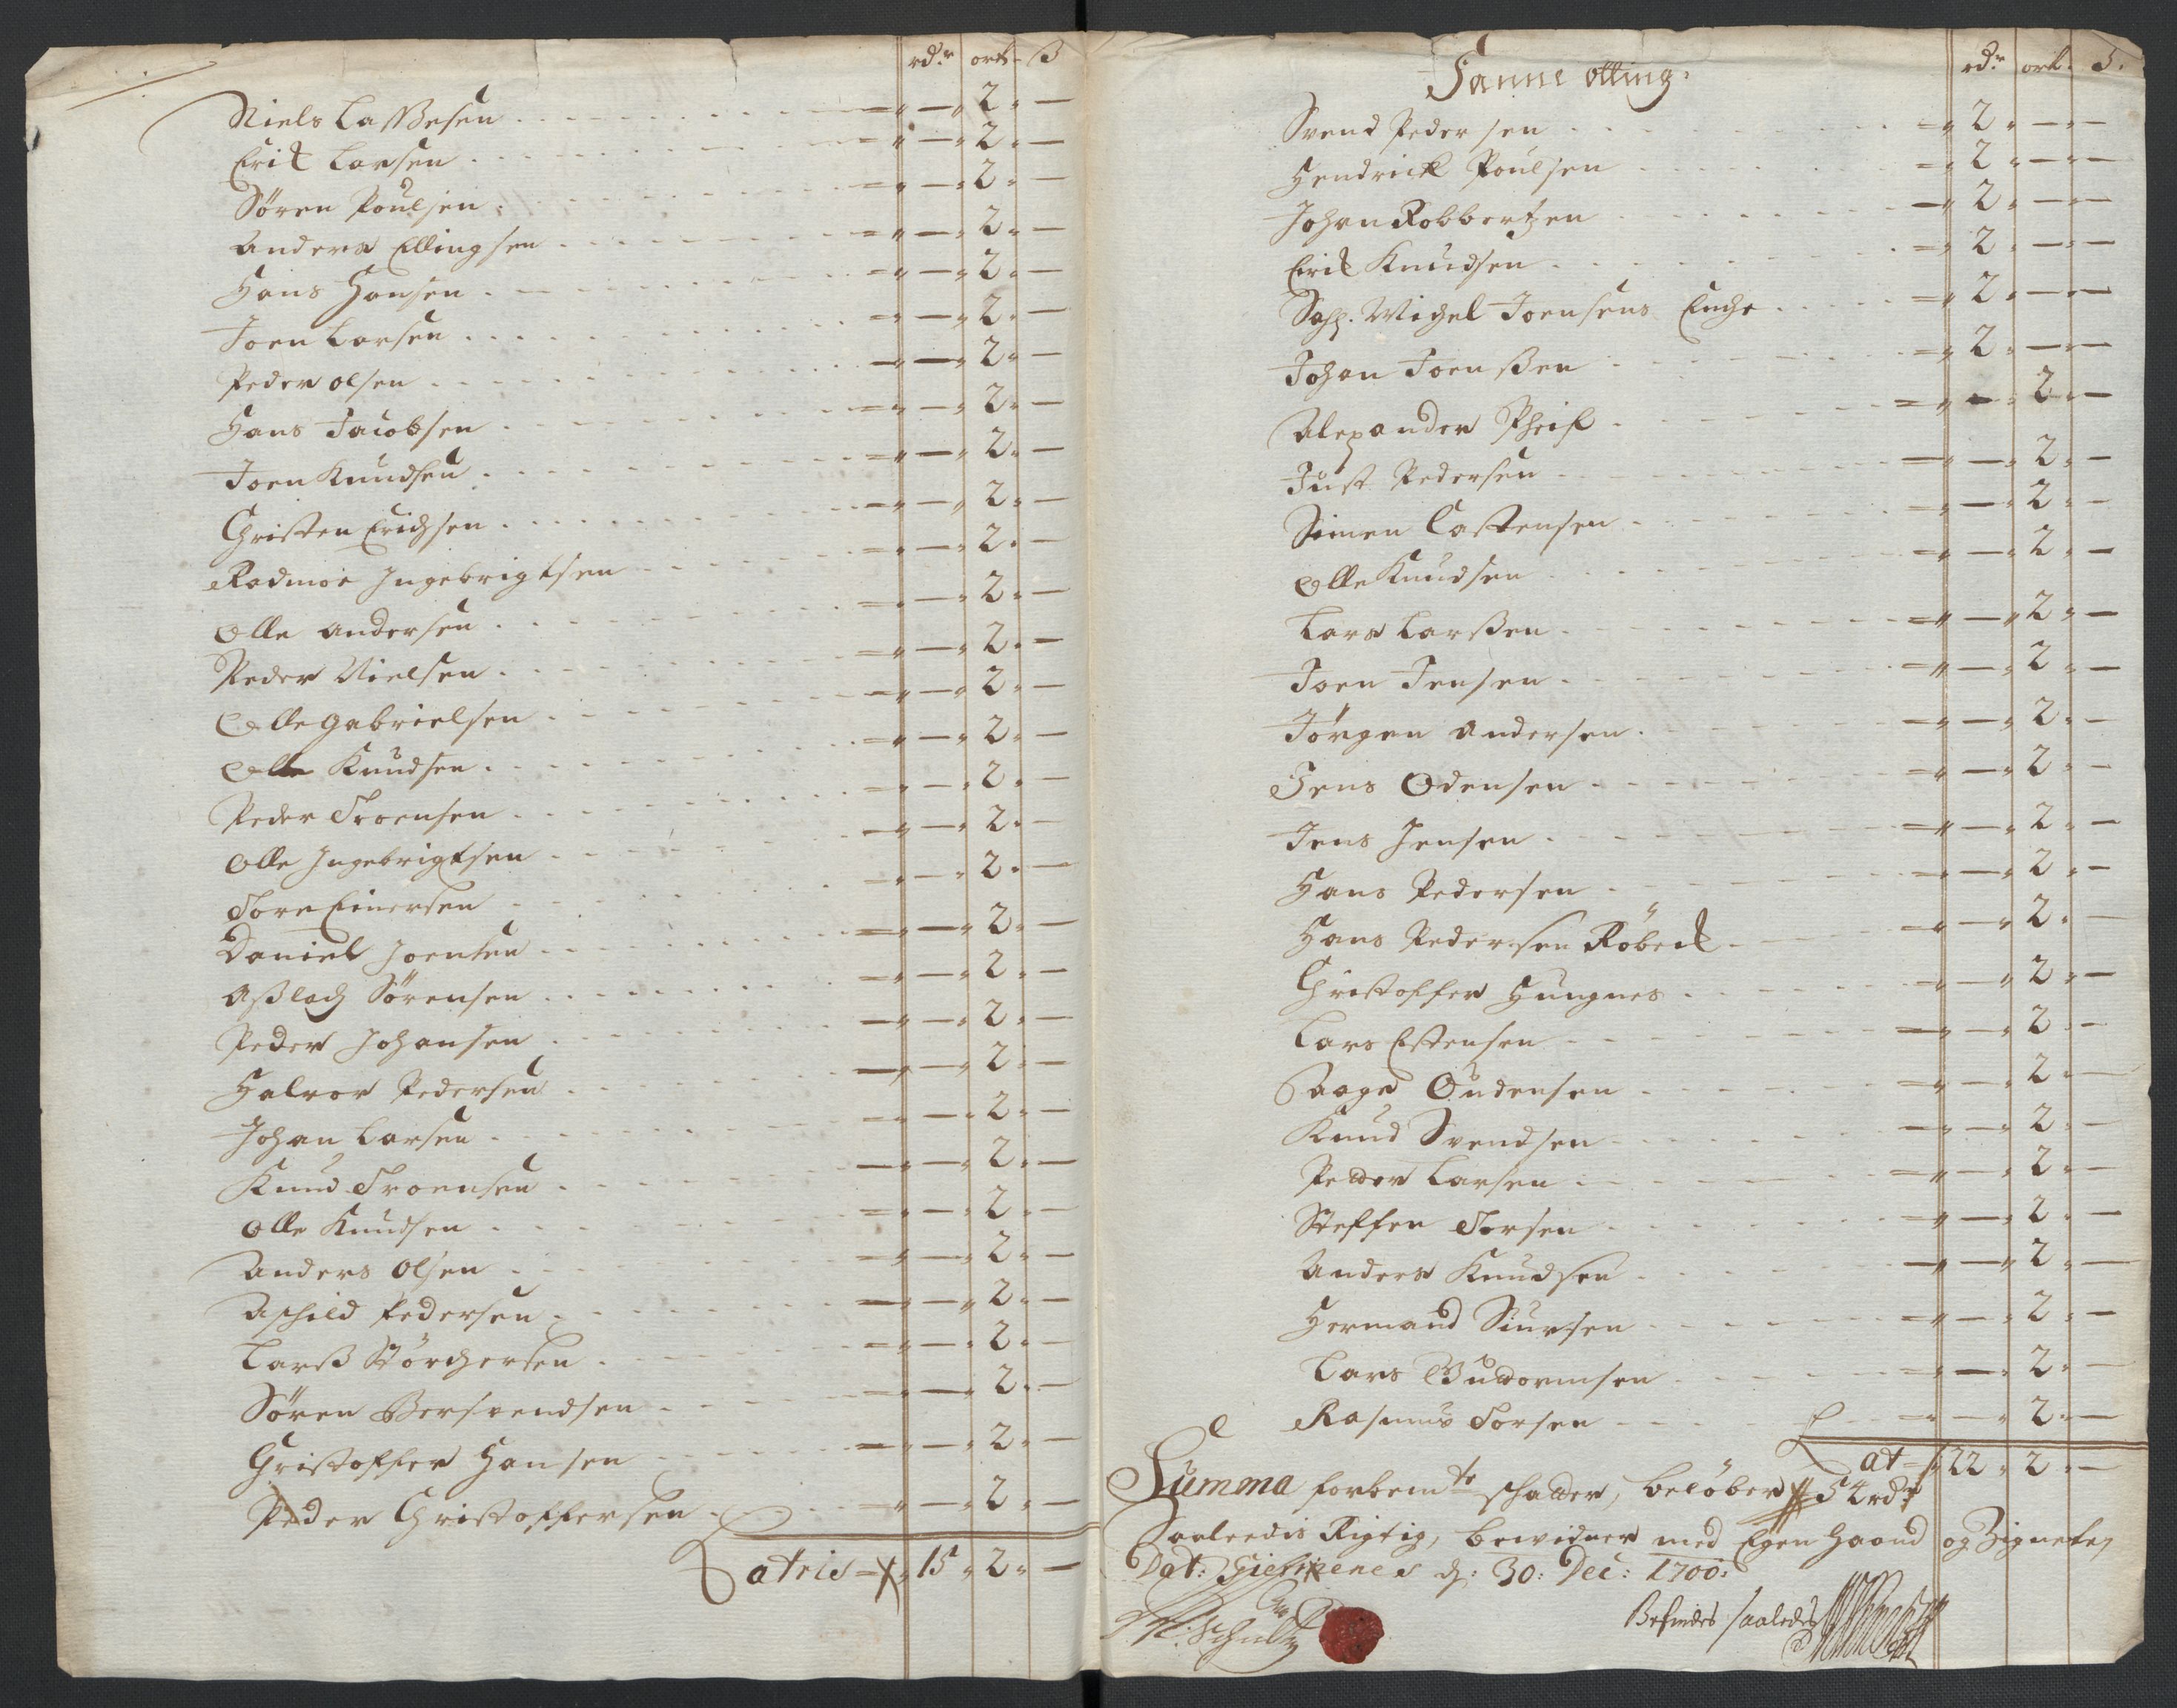 rdr ort ß
Niels Laßesen - 2 -
Erik Larsen - 2 -
Sören Poulsen - 2 -
Anders Ellingsen - 2 -
Hans Hansen - 2 -
Joen Larsen - 2 -
Peder olsen - 2 -
Hans Jacobsen - 2 -
Joen Knudsen - 2 -
Christen Erichsen - 2 -
Radmoe Ingebrigtsen - 2 -
Olle Andersen - 2 -
Peder Nielsen - 2 -
Olle gabrielsen - 2 -
Olle Knudsen - 2 -
Peder Troensen - 2 -
Olle Ingebrigtsen - 2 -
Tore Einersen - 2 -
Daniel Joensen - 2 -
Aßlach Sörensen - 2 -
Peder Johansen - 2 -
Halvor Pedersen - 2 -
Johan Larsen - 2 -
Knud Troensen - 2 -
Olle Knudsen - 2 -
Anders Olsen - 2 -
Aschild Pedersen - 2 -
Larß Störchersen - 2 -
Sören Bersvendsen - 2 -
Christoffer Hansen - 2 -
Peder Christoffersen - 2 -
Latris 15 2 -
Sanne otting:
rdr ort ß.
Svend Pedersen 2 - -
Hendrick Poulsen 2 - -
Johan Robbertzen 2 - -
Erik Knudsen 2 - -
Sahl. Michel Joensens Enche 2 - -
Johan Joenßen 2 - -
Alexander Pheif - 2 -
Just Pedersen - 2 -
Simen Castensen - 2 -
Olle Knudsen - 2 -
Lars Larßen - 2 -
Joen Jensen - 2 -
Jörgen Andersen - 2 -
Jens Odensen - 2 -
Jens Jensen - 2 -
Hans Pedersen - 2 -
Hans Pedersen Röbeck - 2 -
Christoffer Hungnes - 2 -
Lars Estensen - 2 -
Baage Oudensen - 2 -
Knud Svendsen - 2 -
Peder Larsen - 2 -
Steffen Torsen - 2 -
Anders Knudsen - 2 -
Hermand Siursen - 2 -
Lars Gudormsen - 2 -
Rasmus Torsen - 2 -
Lat 22 2 -
Summa forbemte schatter, belöber 54 rdr
Saaledis Rigtig, bevidner med Egen haand og Zignete,
Dat: d: 30: Dec: 1700:
Schultz
Befindes saaledis